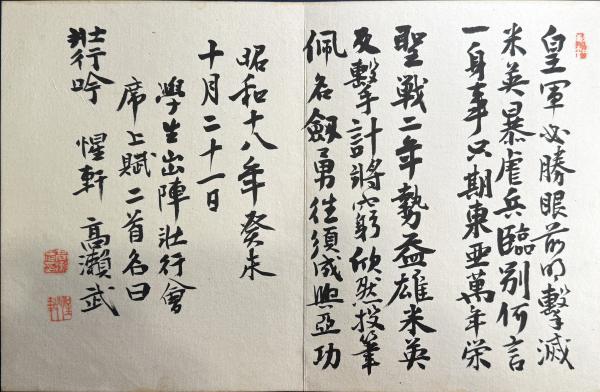 皇軍必勝眼前明撃滅
米英暴虐兵臨別何言
一身事只期東亜萬年栄
聖戦二年勢益雄米英
反撃計将窮欣然投筆
佩名劔勇往須成興亞功
昭和十八年癸未
十月二十一日
學生出陣壮行會
席上賦二首名曰
壮行吟 惺軒 高瀬武